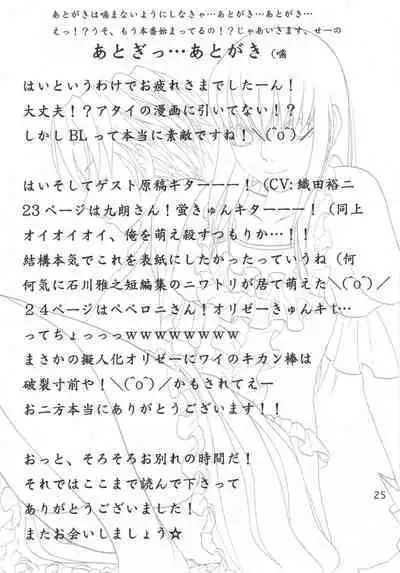 あとがきは噛まないようにしなきゃ…あとがき…あとがき…
えっ！？うそ、もう本番始まってるの！？じゃあいきます、せーの
あとぎっ…あとがき（噛
はいというわけでお疲れさまでしたーん！
大丈夫！？アタイの漫画に引いてない！？
しかしBLって本当に素敵ですね！＼(^o^)／
はいそしてゲスト原稿キターーー！（CV:織田裕二
23ページは九朗さん！蛍きゅんキターーー！（同上
オイオイオイ、俺を萌え殺すつもりか…！！
結構本気でこれを表紙にしたかったっていうね（何
何気に石川雅之短編集のニワトリが居て萌えた＼(^o^)／
24ページはペペロニさん！オリゼーきゅんキt…
ってちょっっっwwwwwwww
まさかの擬人化オリゼーにワイのキカン棒は
破裂寸前や！＼(^o^)／かもされてえー
お二方本当にありがとうございます！！
おっと、そろそろお別れの時間だ！
それではここまで読んで下さって
ありがとうございました！
またお会いしましょう☆
25